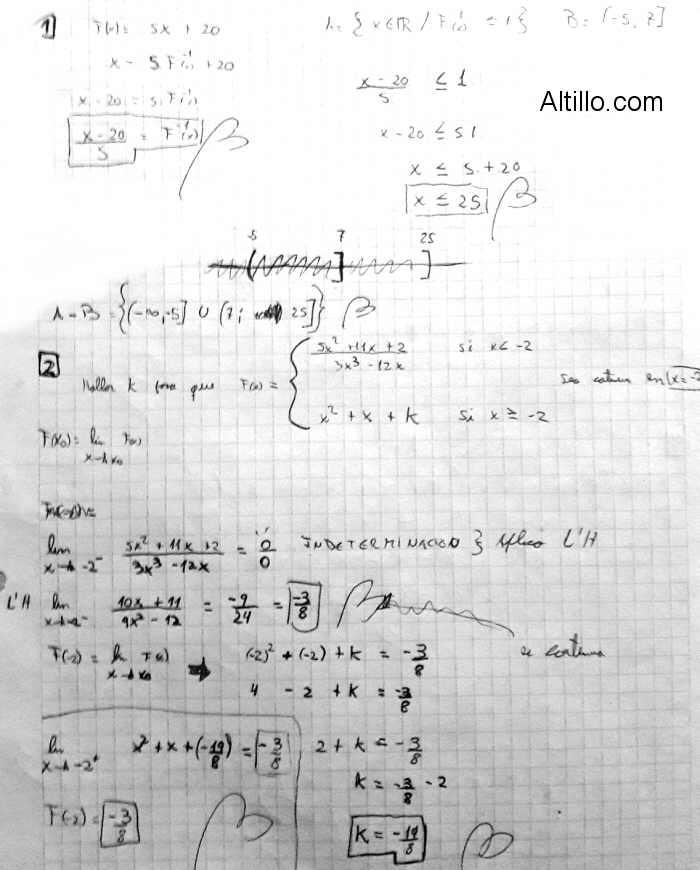 1] F(x) = 5x + 20 A = { x ∈ ℝ / F⁻¹(x) ≤ 1 } B = (-5, 7]
x = 5.F⁻¹(x) + 20
x - 20 = 5.F⁻¹(x)
x - 20 / 5 = F⁻¹(x)
x - 20 / 5 ≤ 1
Altillo.com
x - 20 ≤ 5.1
x ≤ 5 + 20
x ≤ 25
-5 7 25
A - B = {(-∞, -5] ∪ (7; 25]} B
2 Hallar k para que F(x) = { 5x² + 11x + 2 / 3x³ - 12x si x < -2
x² + x + k si x ≥ -2
sea continua en x = -2
F(x₀) = lim x→x₀ F(x)
lim x→-2⁻ 5x² + 11x + 2 / 3x³ - 12x = "0/0 INDETERMINACION } Aplico L'H
L'H lim x→-2⁻ 10x + 11 / 9x² - 12 = -9/24 = -3/8 B
F(-2) = lim x→x₀ F(x) → (-2)² + (-2) + k = -3/8
4 - 2 + k = -3/8
2 + k = -3/8
k = -3/8 - 2
k = -19/8 B
lim x→-2⁺ x² + x + (-19/8) = -3/8
F(-2) = -3/8 B